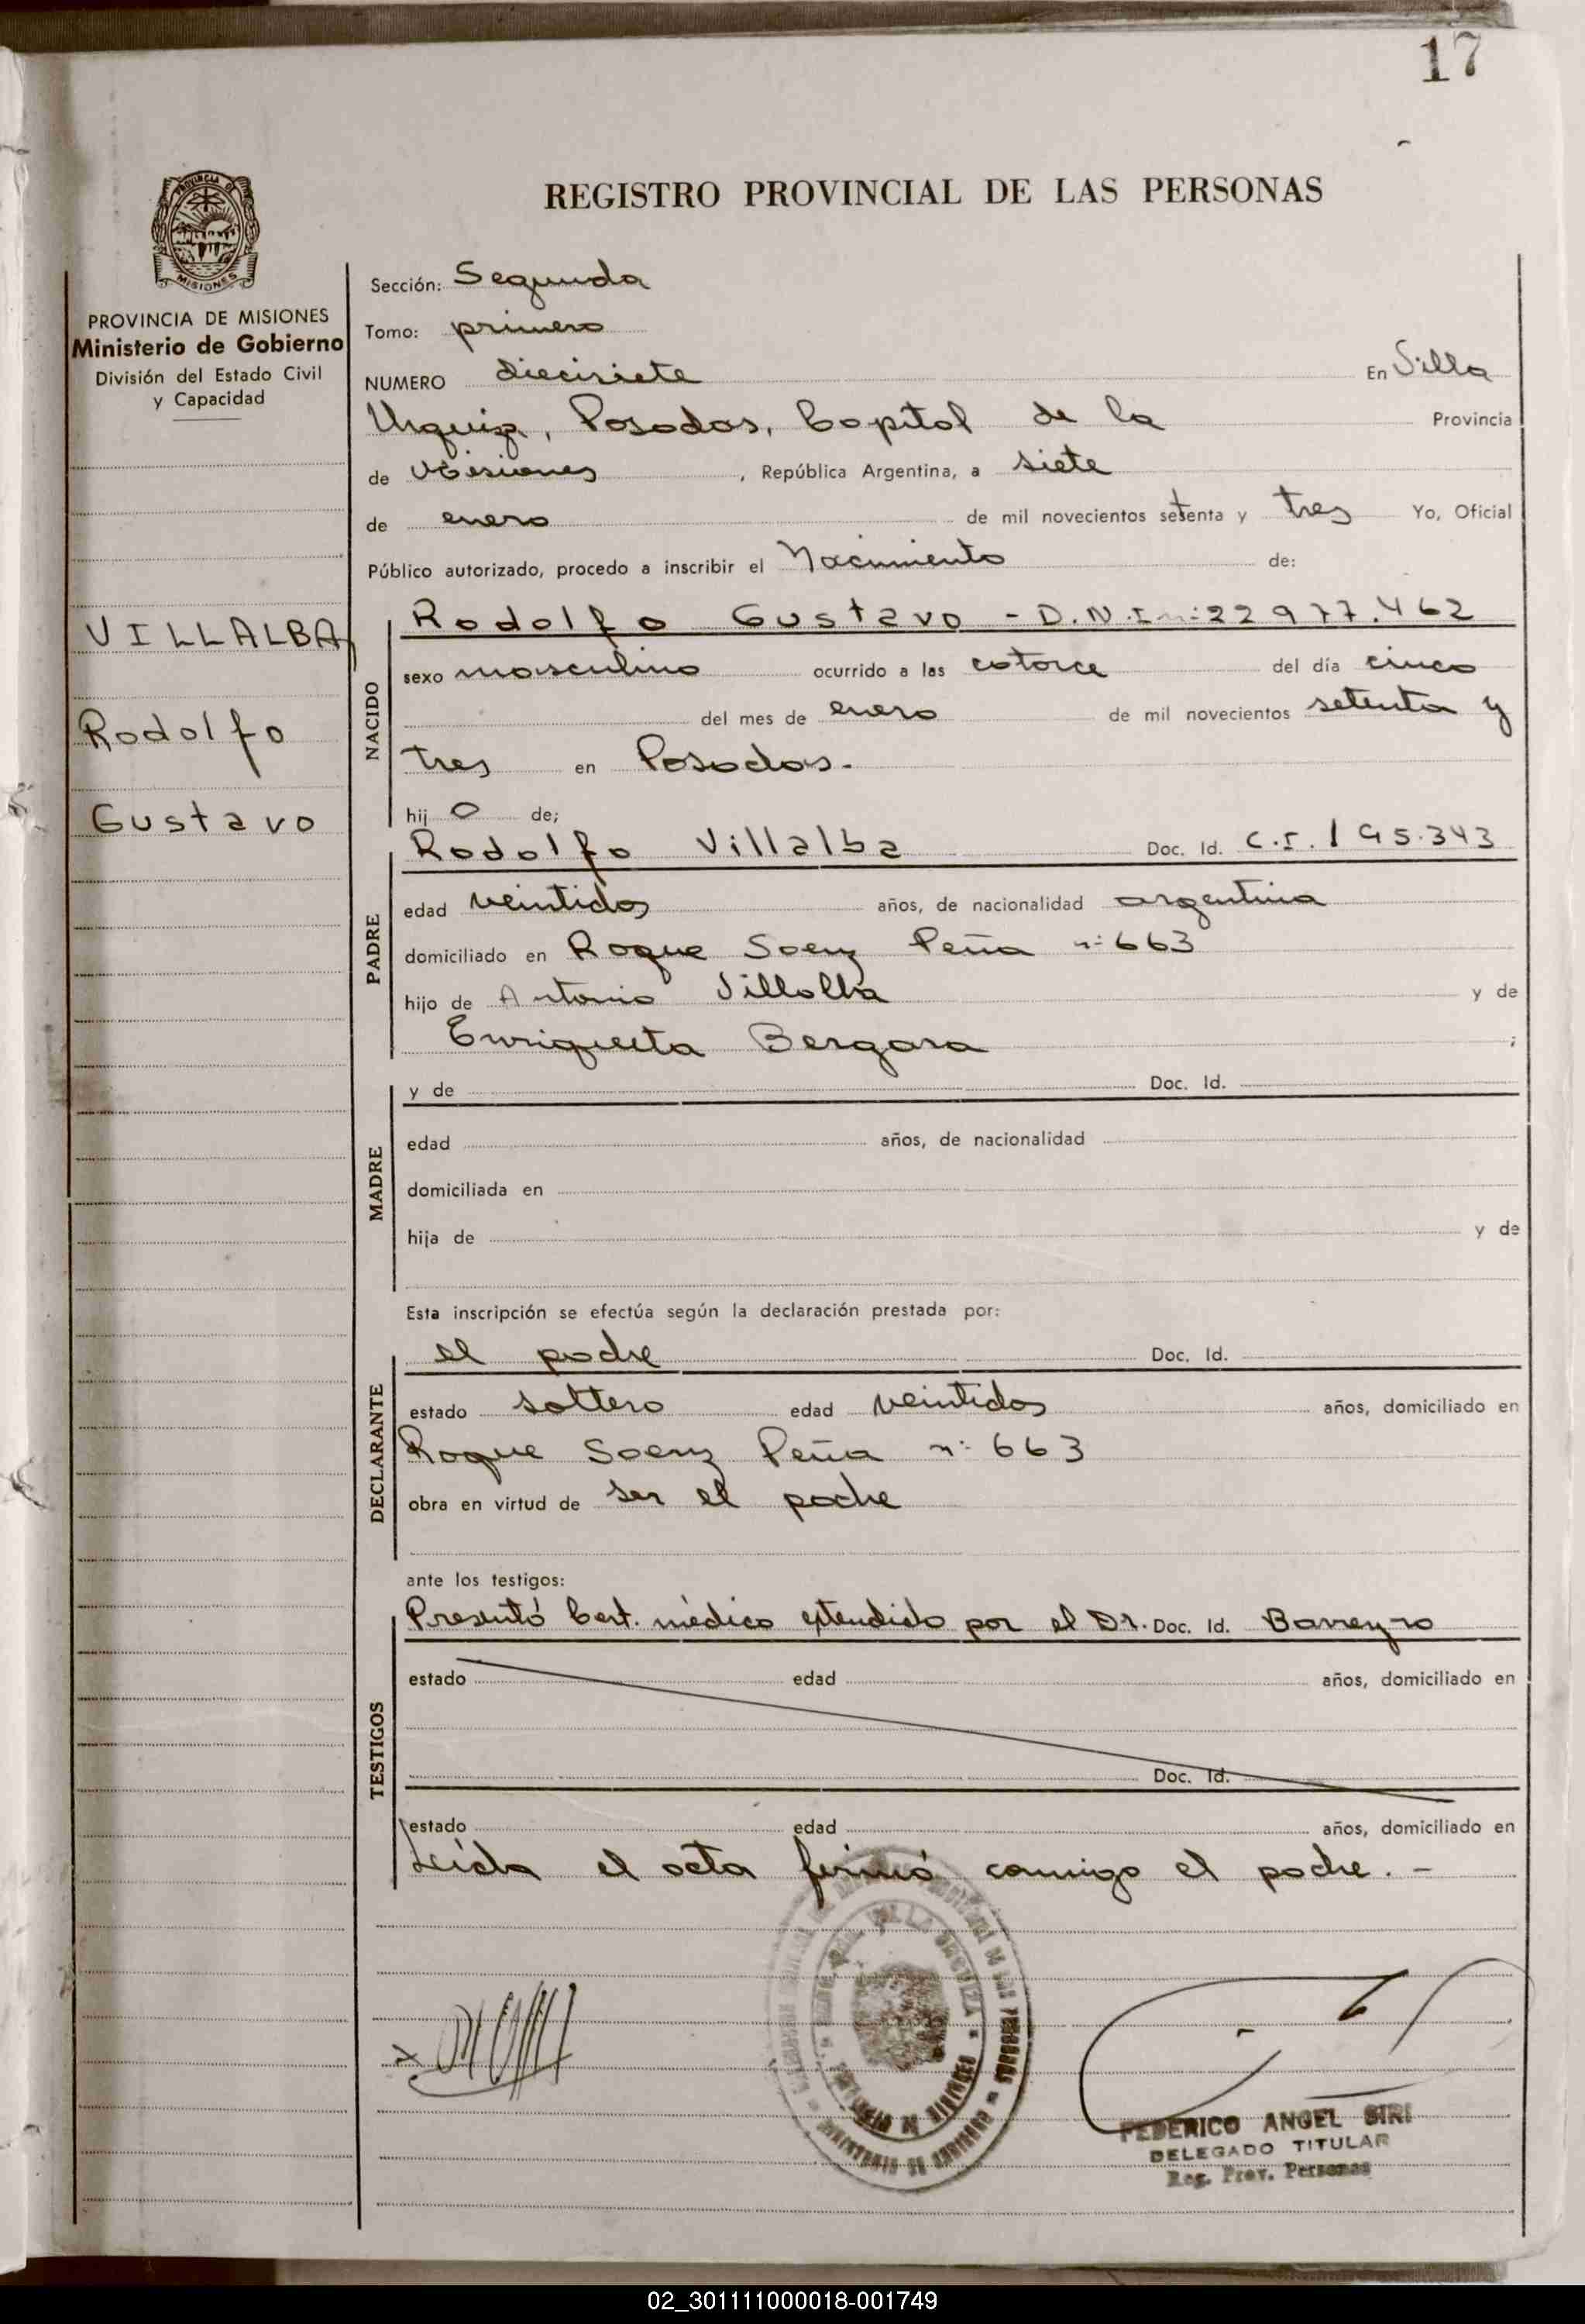 17
REGISTRO PROVINCIAL DE LAS PERSONAS
PROVINCIA DE
MISIONES
PROVINCIA DE MISIONES
Ministerio de Gobierno
División del Estado Civil
y Capacidad
VILLALBA
Rodolfo
Gustavo
Sección: Segunda
Tomo: primero
NUMERO diecisiete En Villa
Urquiza, Posadas, Capital de la Provincia
de Misiones, República Argentina, a siete
de enero de mil novecientos setenta y tres Yo, Oficial
Público autorizado, procedo a inscribir el Nacimiento de:
NACIDO
Rodolfo Gustavo - D.N.I. nº: 22977.462
sexo masculino ocurrido a las catorce del día cinco
del mes de enero de mil novecientos setenta y
tres en Posadas.-
hij o de;
PADRE
Rodolfo Villalba Doc. Id. C.I. 195.343
edad veintidos años, de nacionalidad argentina
domiciliado en Roque Saenz Peña nº 663
hijo de Antonio Villalba y de
Enriqueta Bergara ;
MADRE
y de Doc. Id.
edad años, de nacionalidad
domiciliada en
hija de y de
Esta inscripción se efectúa según la declaración prestada por:
DECLARANTE
el padre Doc. Id.
estado soltero edad veintidos años, domiciliado en
Roque Saenz Peña nº 663
obra en virtud de ser el padre
ante los testigos:
TESTIGOS
Presentó Cert. médico extendido por el Dr. Doc. Id. Barreyro
estado edad años, domiciliado en
Doc. Id.
estado edad años, domiciliado en
Leída el acta firmó conmigo el padre.-
FEDERICO ANGEL SIRI
DELEGADO TITULAR
Reg. Prov. Personas
02_301111000018-001749